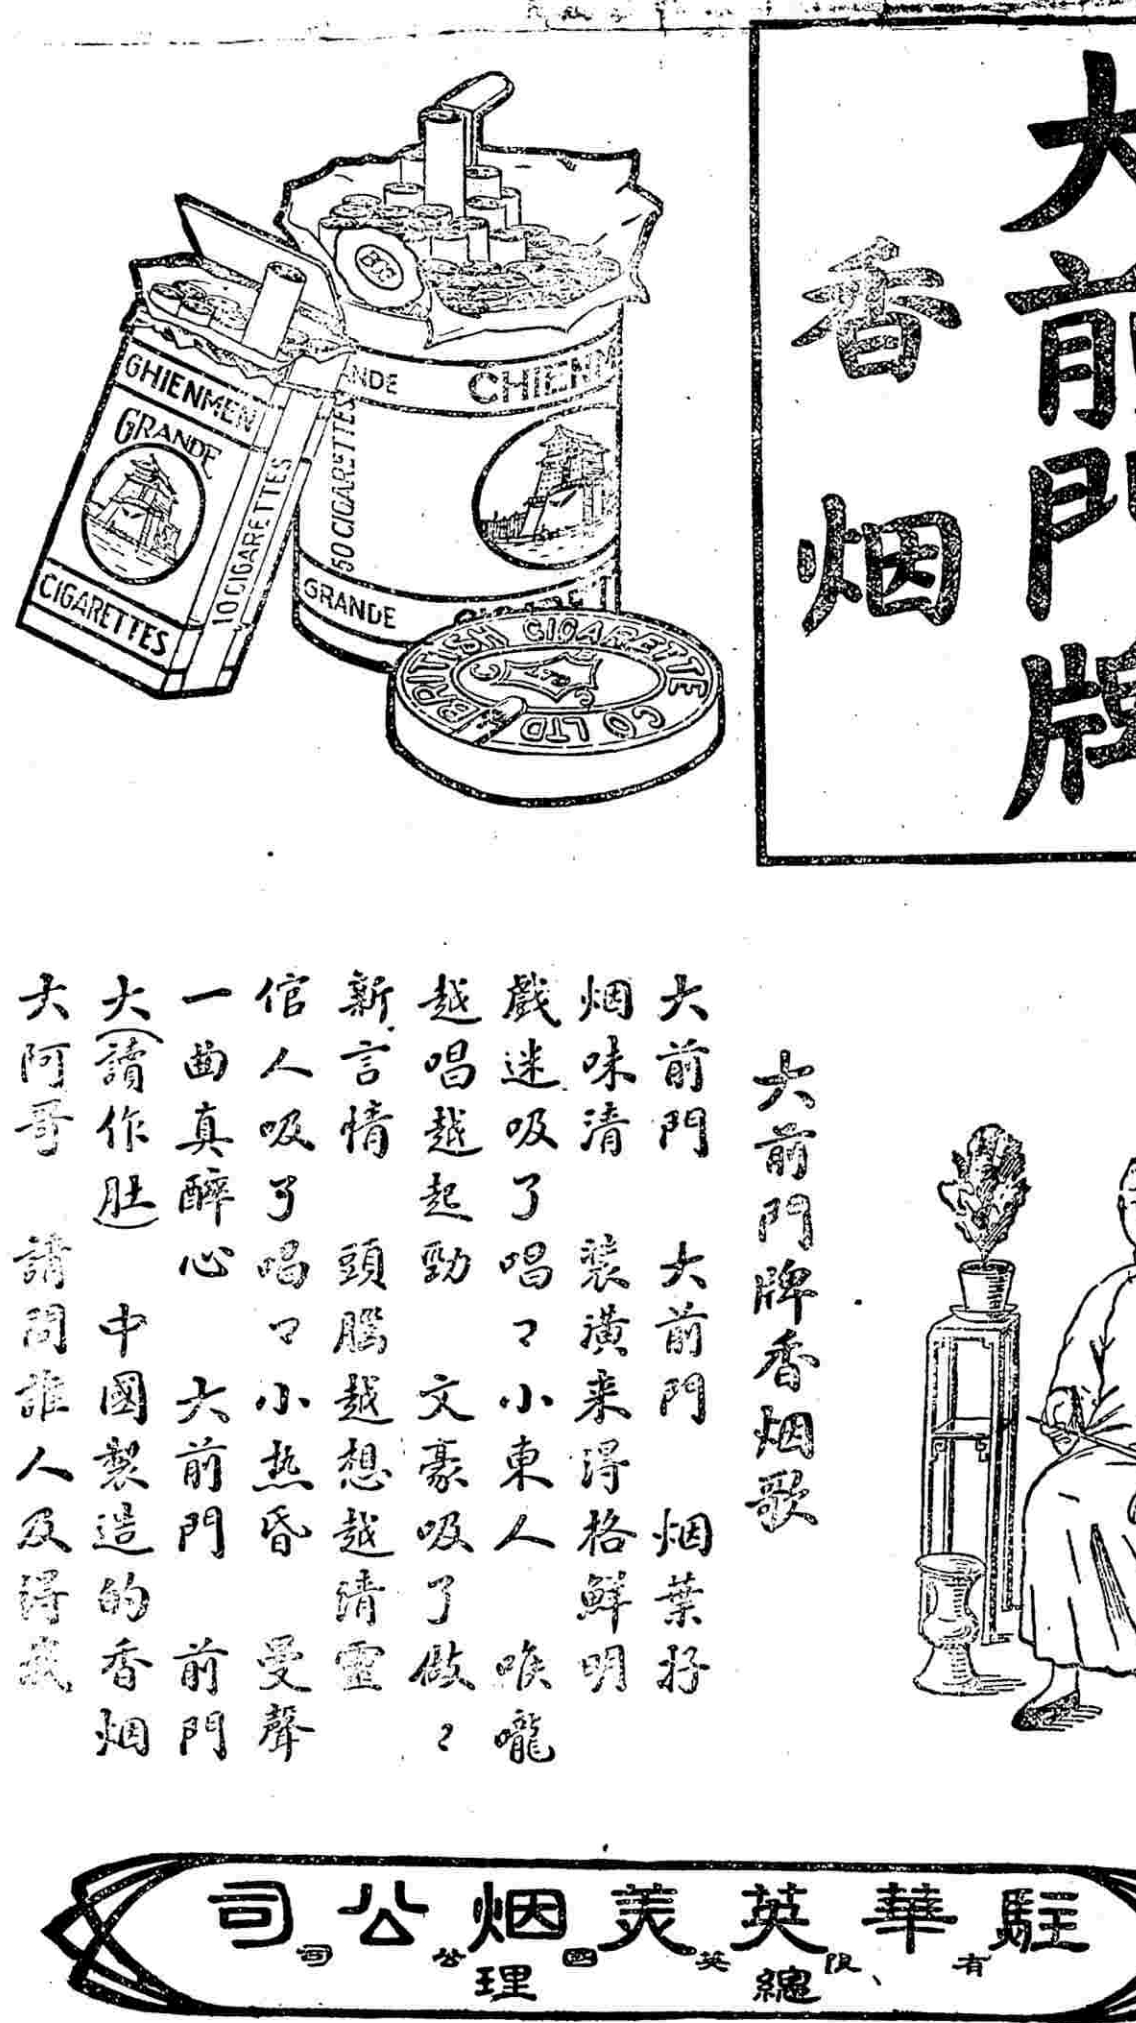 大前門牌
香烟
CHIENMEN
GRANDE
CIGARETTES
10 CIGARETTES
NDE
CHIENM
50 CIGARETTES
GRANDE
BRITISH CIGARETTE CO LTD
大前門牌香烟歌
大前門 大前門 烟葉好
烟味清 裝潢来得格鮮明
戲迷吸了唱々小東人 喉嚨
越唱越起勁 文豪吸了做々
新言情 頭腦越想越清靈
倌人吸了唱々小热昏 曼聲
一曲真醉心 大前門 前門
大(讀作肚) 中國製造的香烟
大阿哥 請問誰人及得我
駐華英美烟公司
有限 英 公司
總理